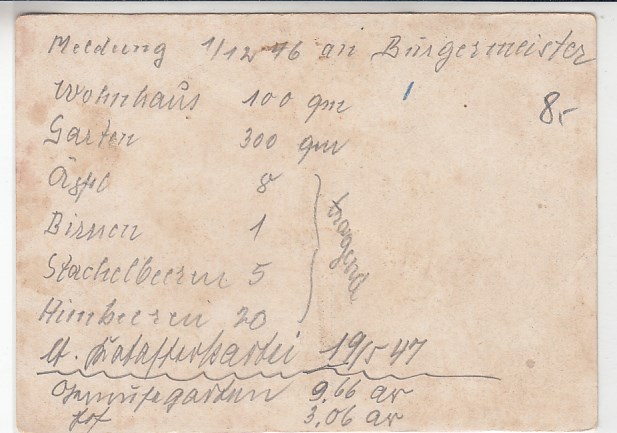 Meldung 1/12 46 an Bürgermeister
Wohnhaus 100 qm
8,-
Garten 300 qm
Äpfel 8
Birnen 1
Stachelbeeren 5
Himbeeren 20
tragend
lt. Katasterkartei 19/5 47
Gemüsegarten 9,66 ar
Hof 3,06 ar